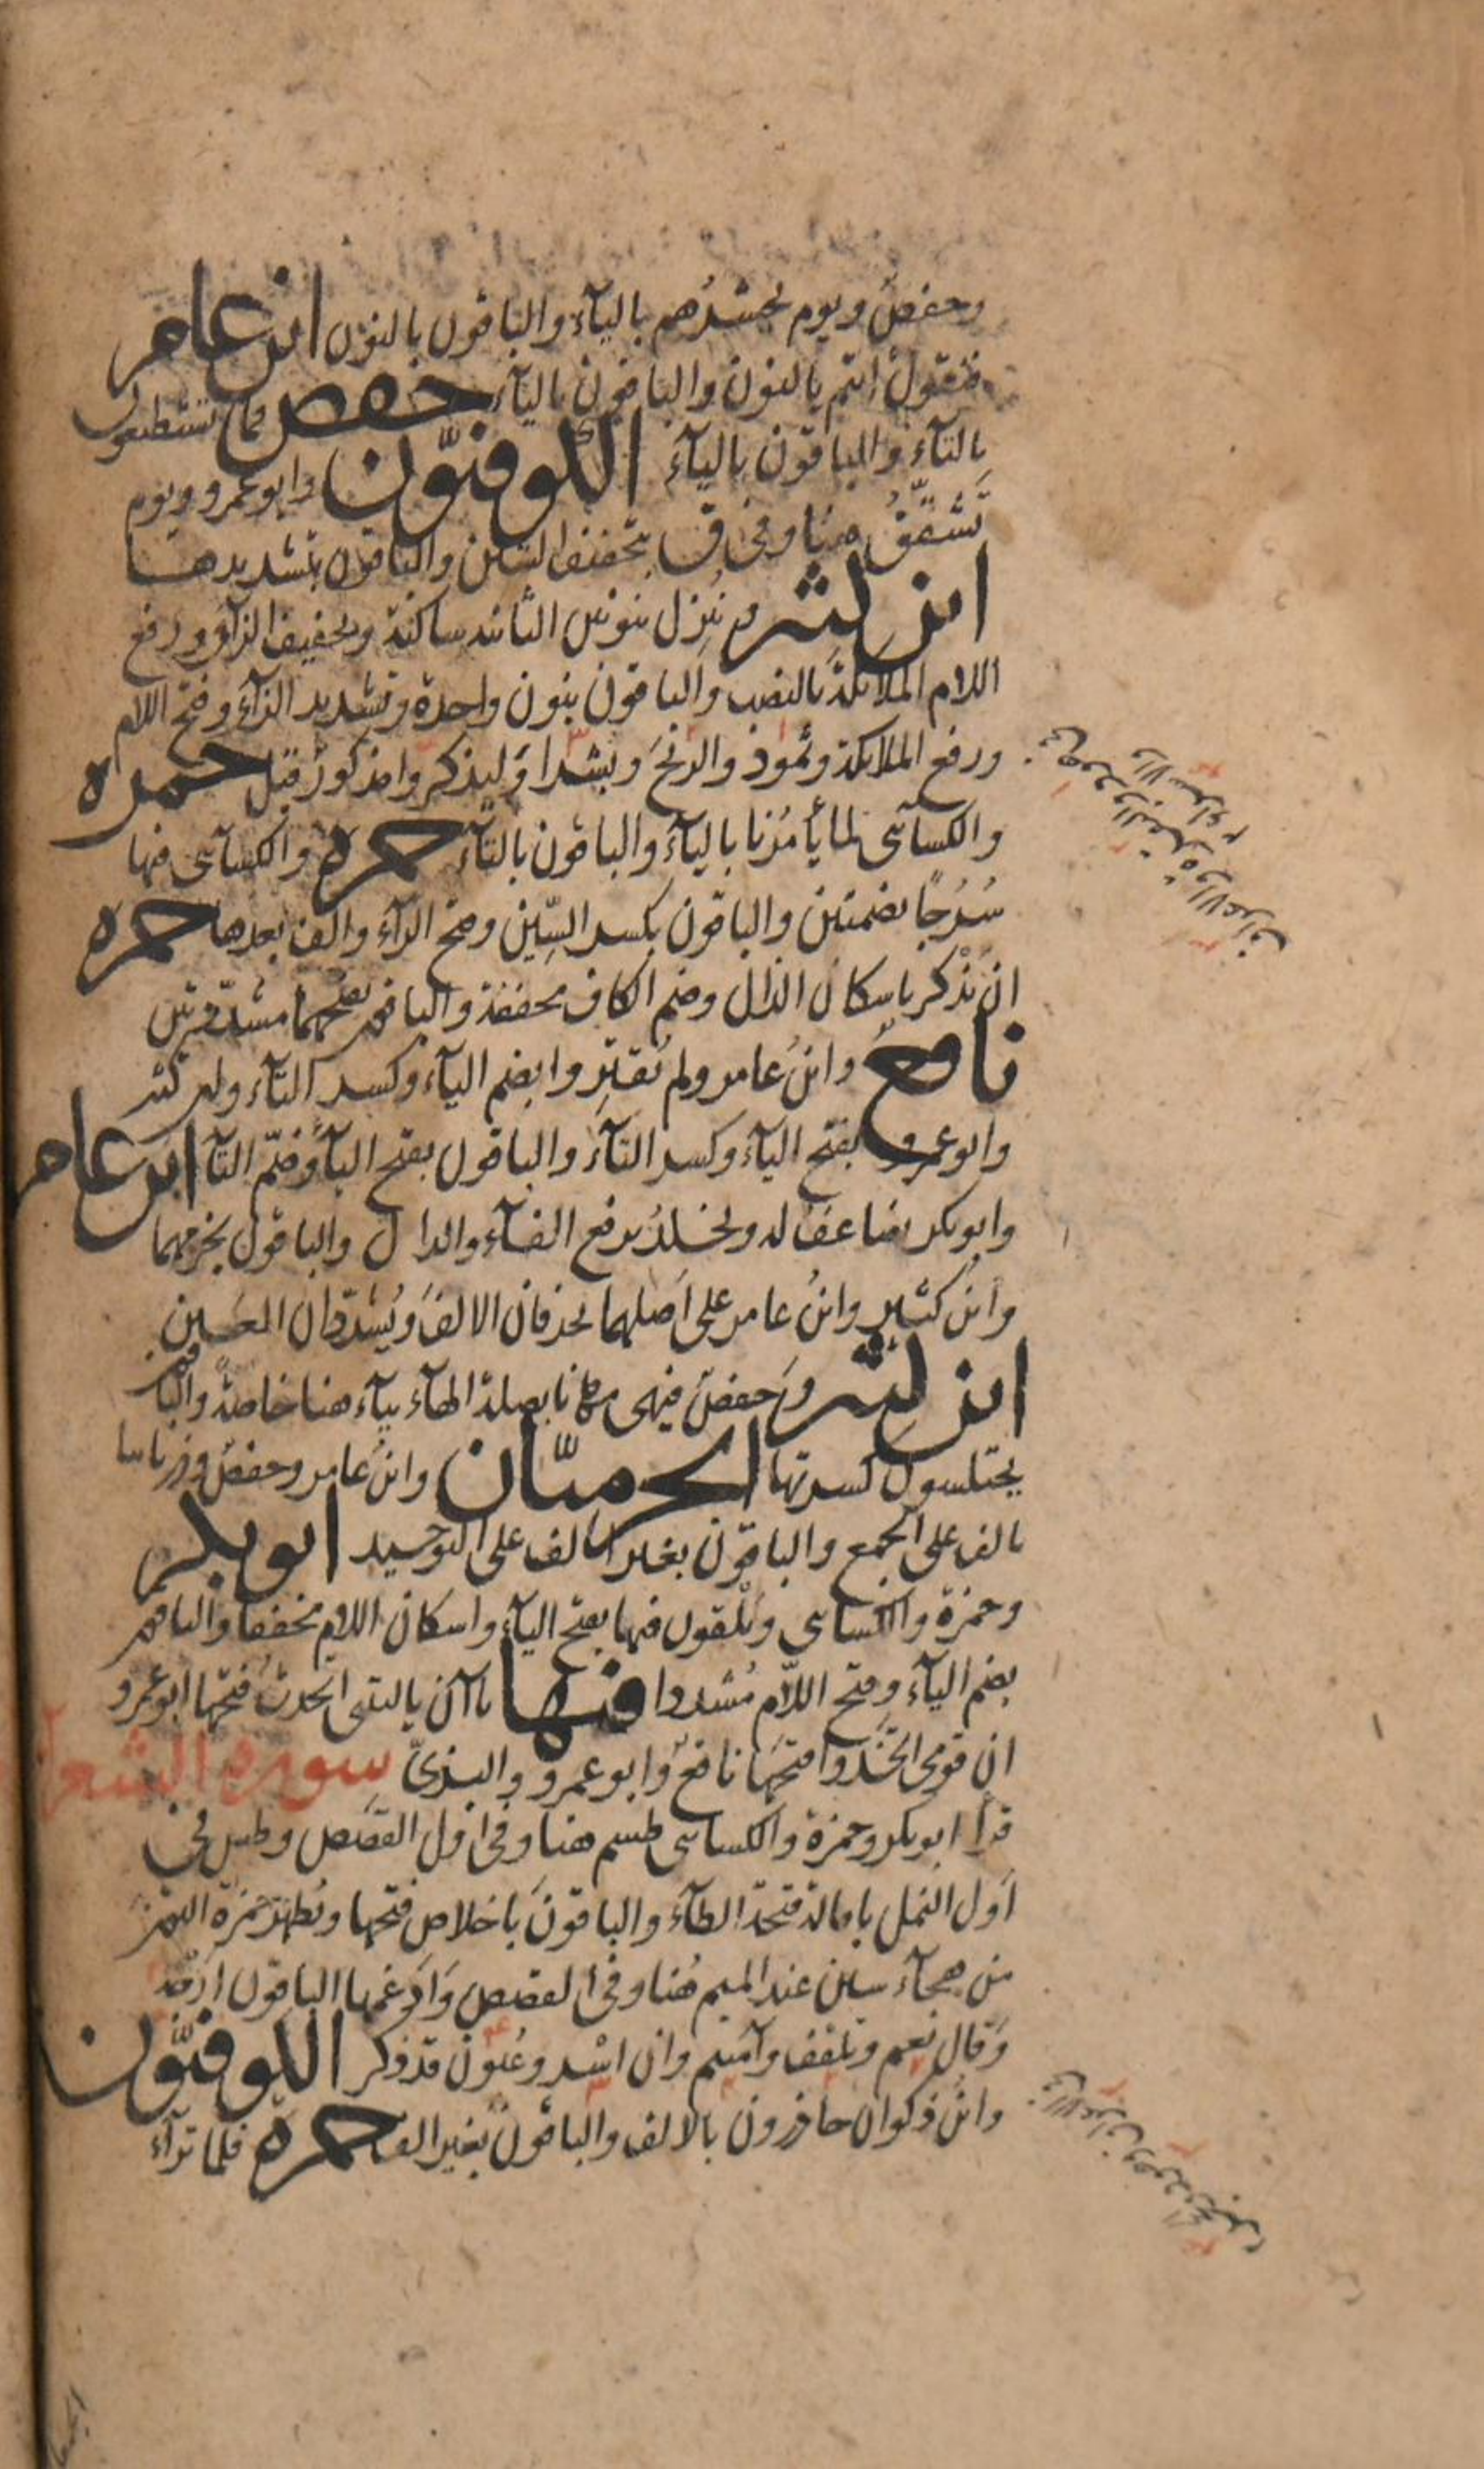 وحفص ويوم يحشرهم باليآء والباقون بالنون ابن عامر
فنقول أنتم بالنون والباقون باليآء حفص فما تستطيعون
بالتآء والباقون باليآء الكوفيّون وابو عمرو ويوم
تَشَقَّقُ هنا وفى ق بتخفيف الشين والباقون بتشديدها
ابن كثير وننزل بنونين الثانية ساكنة وتخفيف الزآء ورفع
اللام الملائكة بالنصب والباقون بنون واحدة وتشديد الزآء وفتح اللام
ورفع الملائكة وثمود والريح وبشرا وليذكروا مذكور قبل حمزه
والكسآئى لما يأمرنا باليآء والباقون بالتآء حمزه والكسآئى فيها
سُرُجًا بضمتين والباقون بكسر السّين وفتح الرآء والف بعدها حمزه
ان يذْكر باسكان الذال وضم الكاف مخففة والباقون بفتحهما مشدّدتين
نافع وابن عامر ولم يُقتِروا بضم اليآء وكسر التآء وابن كثير
وابو عمرو بفتح اليآء وكسر التآء والباقون بفتح اليآء وضمّ التآ ابن عامر
وابو بكر يضاعف له ويخلدُ برفع الفآء والدال والباقون بجزمهما
وابن كثير وابن عامر على اصلهما يحذفان الالف ويُشدّدان العين
ابن كثير وحفص فيهى مهانا بصلة الهآء بيآء هنا خاصة والباقون
يختلسون كسرتها الحرميّان وابن عامر وحفص وذرياتنا
بالف على الجمع والباقون بغير الف على التوحيد ابو بكر
وحمزة والكسائى ويَلْقون فيها بفتح اليآء واسكان اللام مخففا والباقون
بضم اليآء وفتح اللّام مُشددا فيها ياآن يا ليتنى اتخذت فتحها ابو عمرو
ان قومى اتخذوا فتحها نافع وابو عمرو والبزىّ سورة الشعرآ
قرأ ابو بكر وحمزة والكسائى طسم هنا وفى اول القصص وطس فى
اول النمل بامالة فتحة الطآء والباقون باخلاص فتحها ويُظهر حمزة النون
من هجآء سين عند الميم هُنا وفى القصص وادغمها الباقون ارجه
وقال نعم وتلقف وآمنتم وان اسْر وعُيون قد ذكر الكوفيّون
وابن ذكوان حاذرون بالالف والباقون بغير الف حمزه فلما ترآء